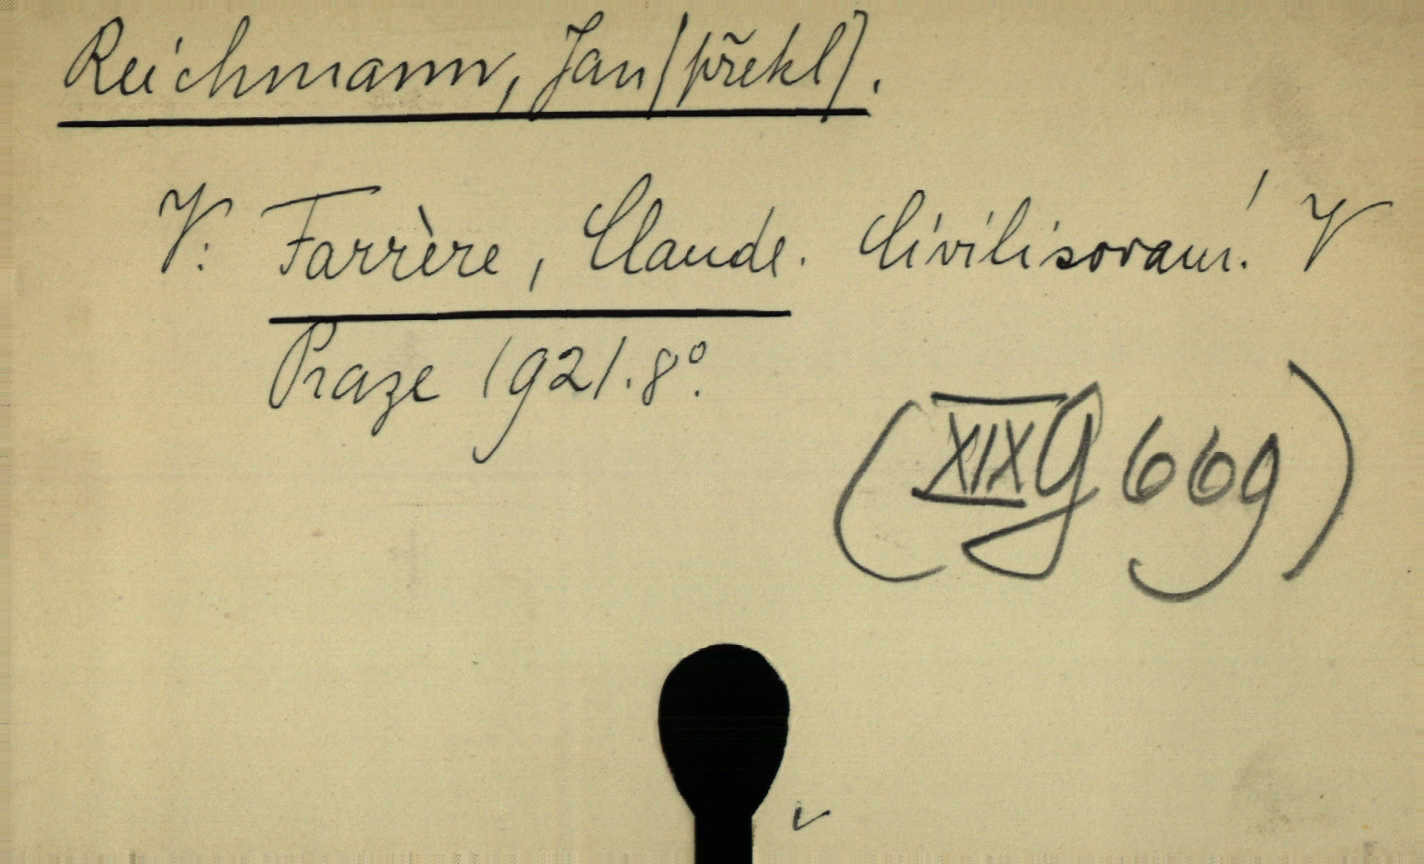 Reichmann, Jan (překl).
V: Farrère, Claude. Civilisovaní. V
Praze 1921. 8°.
(XIX G 669)